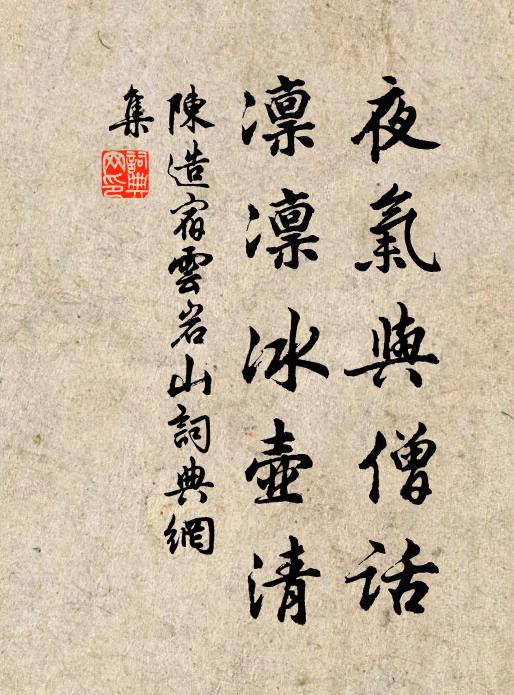 夜氣與僧話
凛凛冰壺清
陳造宿雲岩山詞典網
集
詞典网印